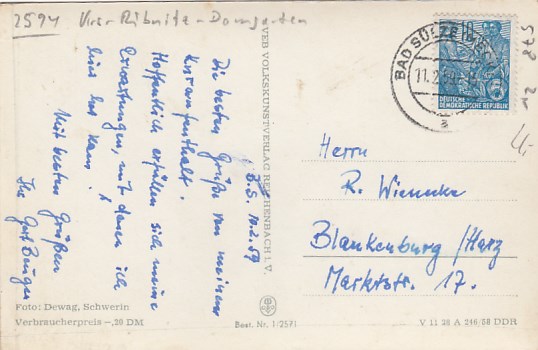 2594 Krs. Ribnitz-Damgarten
B.S. 10.2.59
Die besten Grüße von meinem
Kuraufenthalt.
Hoffentlich erfüllen sich meine
Erwartungen, mit denen ich
hier her kam!
Mit besten Grüßen
Ihr Gert Burger
VEB VOLKSKUNSTVERLAG REICHENBACH I. V.
BAD SÜLZE
11.2.59
a
DEUTSCHE
DEMOKRATISCHE REPUBLIK
578
Herrn
R. Wienecke
Blankenburg/Harz
Marktstr. 17.
Foto: Dewag, Schwerin
Verbraucherpreis -,20 DM
Best. Nr. 1/2571
V 11 28 A 246/58 DDR